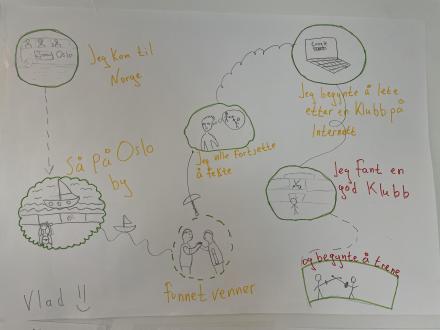 Oslo
Jeg kom til
Norge
Så på Oslo
by
funnet venner
Jeg ville fortsette
å fekte
Google
Jeg begynte å lete
etter en Klubb på
Internett
Jeg fant en
god Klubb
og begynte å trene
Vlad !!